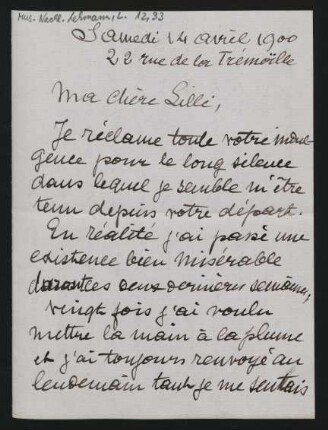 Mus. Nachl. Lehmann, L. 12,33
Samedi 14 avril 1900
22 rue de la Trémoïlle
Ma chère Lilli,
Je réclame toute votre indul-
gence pour le long silence
dans lequel je semble m'être
tenu depuis votre départ.
En réalité j'ai passé une
existence bien misérable
durant ces deux dernières semaines;
vingt fois j'ai voulu
mettre la main à la plume
et j'ai toujours renvoyé au
lendemain tant je me sentais